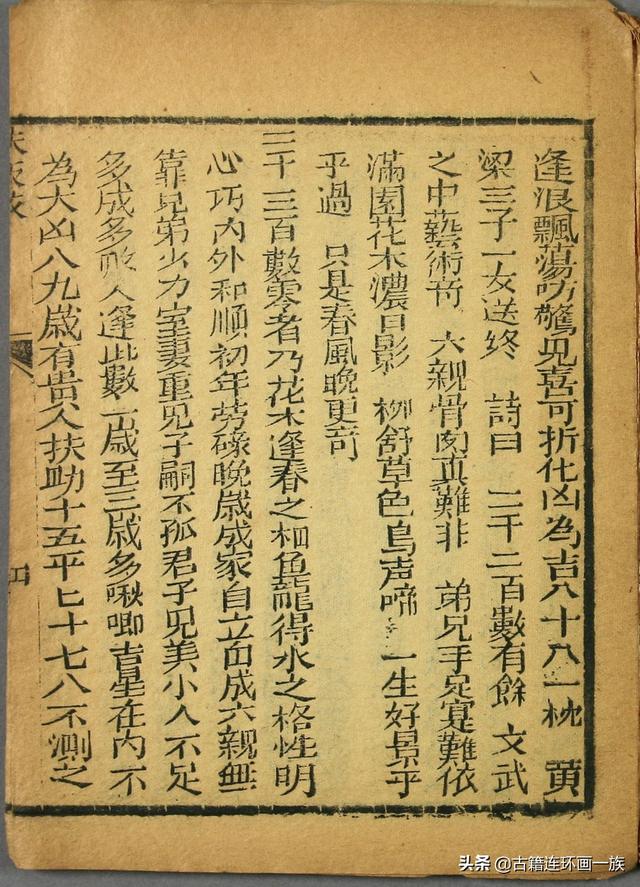 逢浪飄蕩叻驚見喜可折化凶為吉八十八一枕 黄
梁三子一女送終 詩曰 二千二百數有餘 文武
之中藝術奇 六親骨肉真難非 弟兄手足寔難依
滿園花木濃日影 柳舒草色鳥声啼 一生好景乎
乎過 只是春風晚更奇
三千三百數零者乃花木逢春之 魚龍得水之格性明
心巧内外和順初年勞碌晚歲成家自立自成六親無
靠兄弟少力室妻重見子嗣不孤君子見美小人不足
多成多敗人逢此數一歲至三歲多啾唧吉星在内不
為大凶八九歲有貴人扶助十五平七十七八不測之
头条 @古籍连环画一族